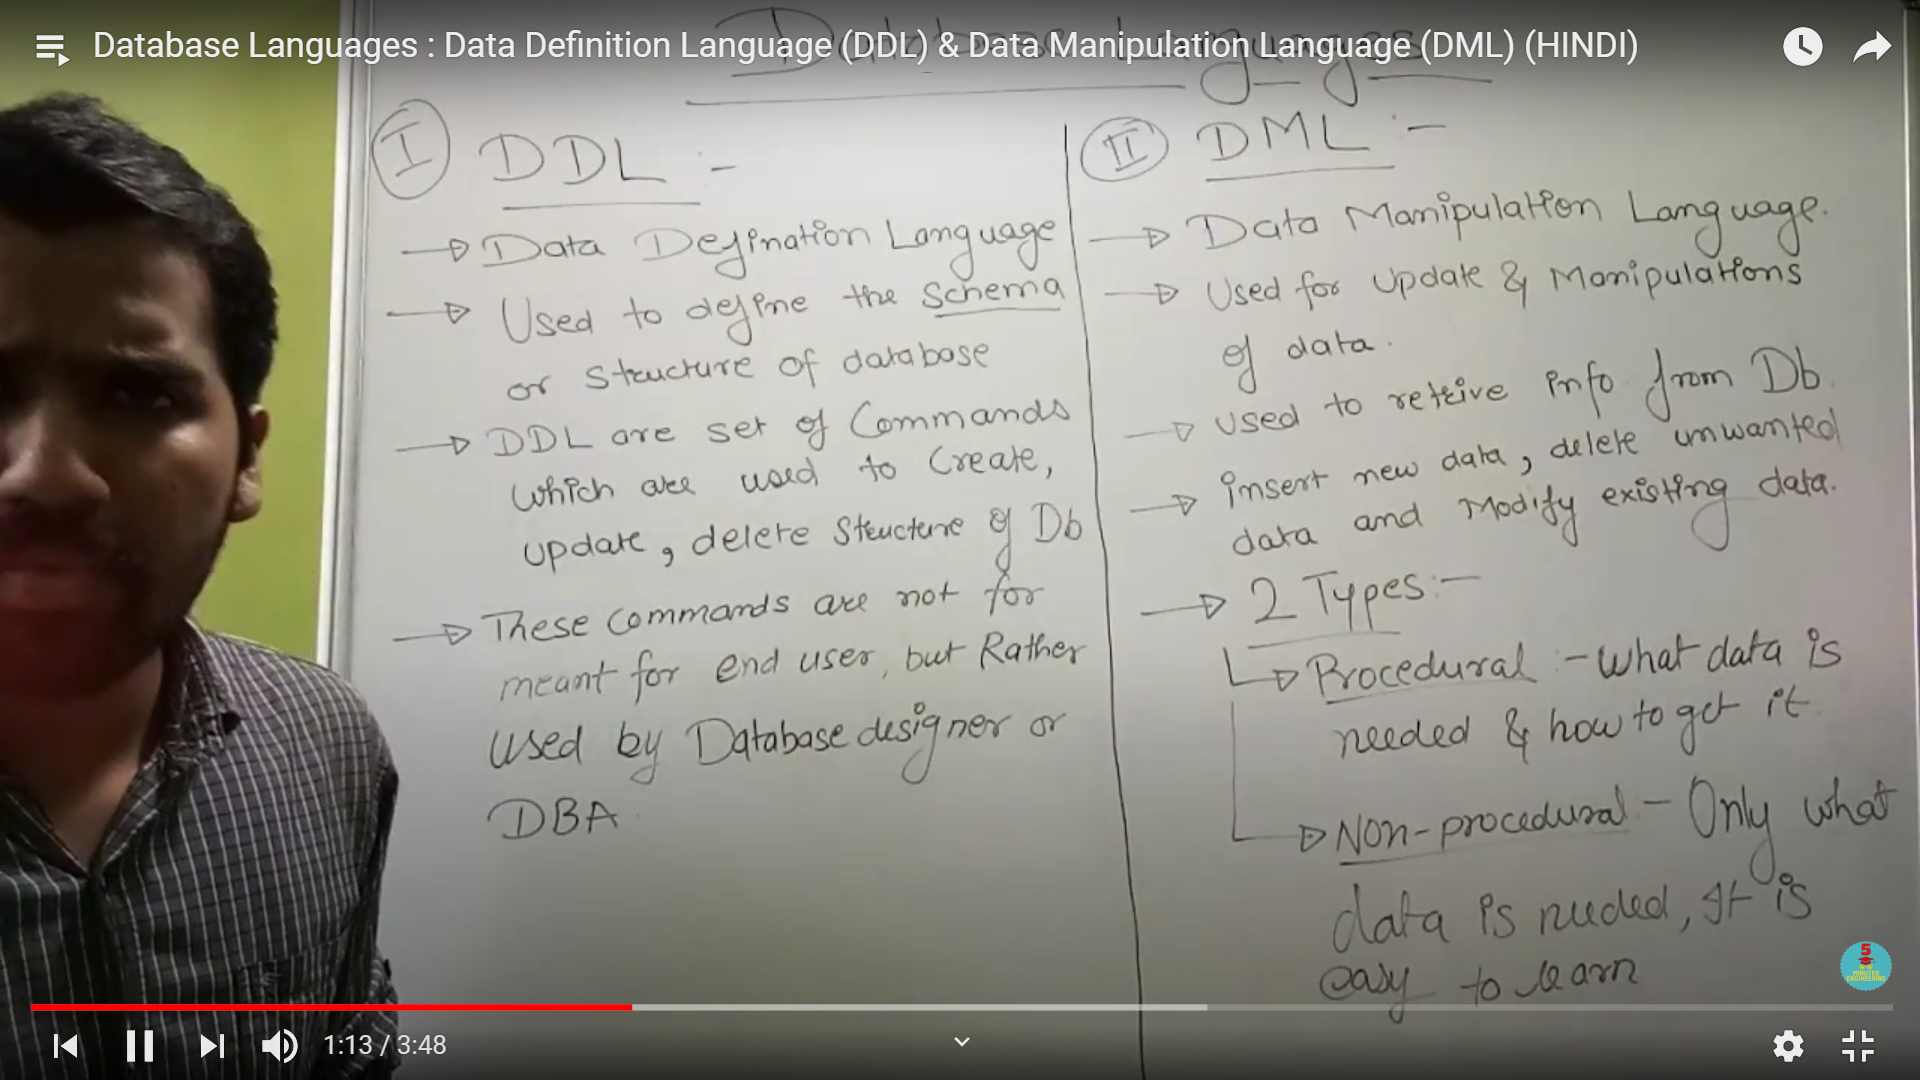 Database Languages : Data Definition Language (DDL) & Data Manipulation Language (DML) (HINDI)
Database Languages
I DDL :-
→ Data Defination Language
→ Used to define the Schema
or Structure of database
→ DDL are set of Commands
which are used to Create,
update, delete Structure of Db
→ These commands are not for
meant for end user, but Rather
used by Database designer or
DBA
II DML :-
→ Data Manipulation Language.
→ Used for update & Manipulations
of data.
→ used to retrive info from Db.
→ insert new data, delete unwanted
data and Modify existing data.
→ 2 Types:-
→ Procedural :- What data is
needed & how to get it.
→ Non-procedural - Only what
data is needed, It is
easy to learn
5
MINUTES
ENGINEERING
1:13 / 3:48